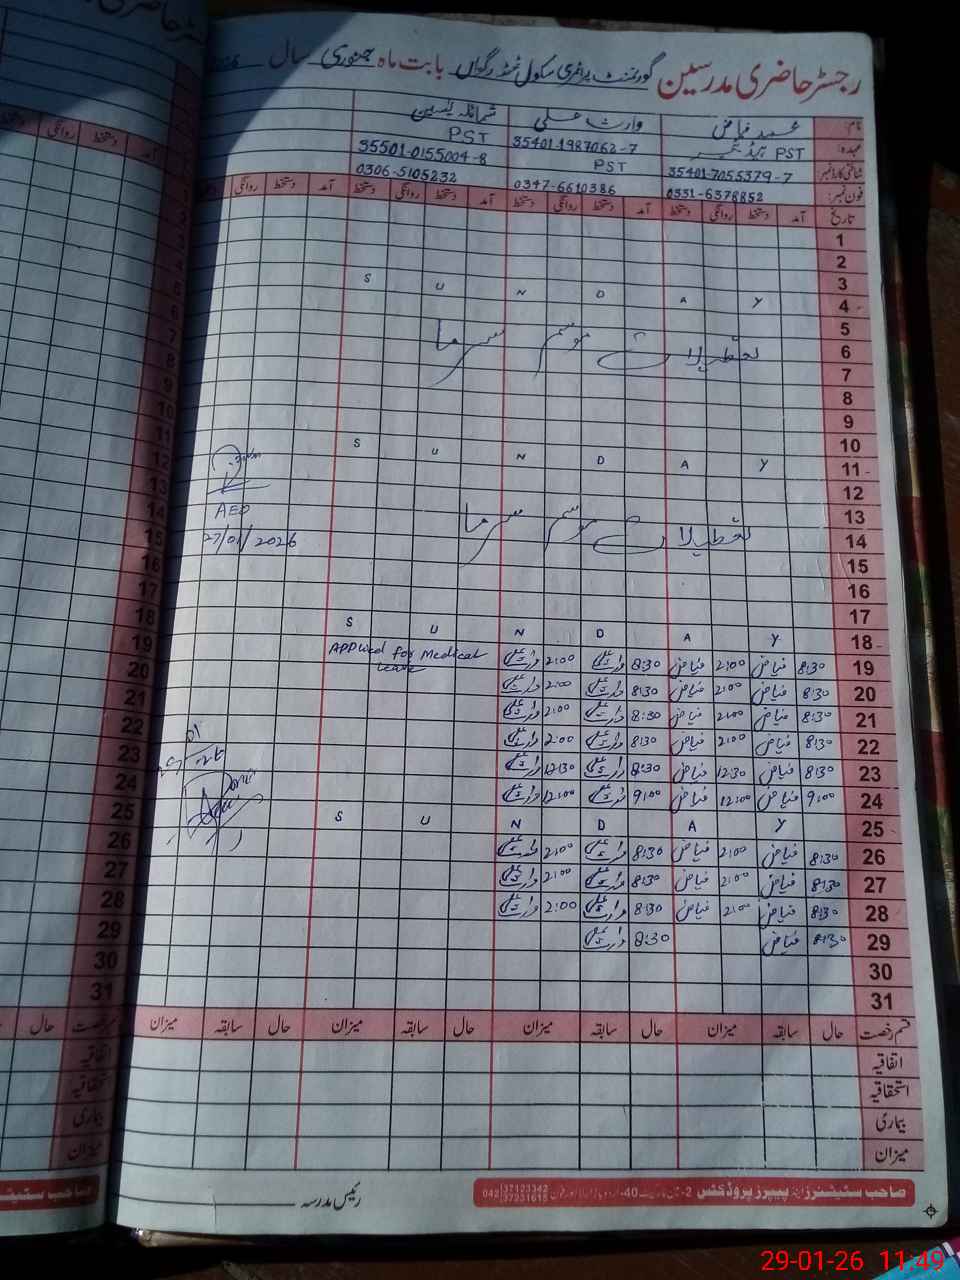 رجسٹر حاضری مدرسین گورنمنٹ پرائمری سکول بابت ماہ جنوری سال
نام: فیاض وارث علی شمائلہ یٰسین
عہدہ: PST ہیڈ ٹیچر 35401-1987062-7 PST
شناختی کارڈ نمبر 35401-7055379-7 PST 35501-0155004-8
فون نمبر: 0331-6378852 0347-6610386 0306-5105232
تاریخ آمد دستخط روانگی دستخط آمد دستخط روانگی دستخط آمد دستخط روانگی دستخط آمد دستخط روانگی
1
2
3
4 S U N D A Y
5
6 تعطیلات موسم سرما
7
8
9
10
11 S U N D A Y
12
13
14 تعطیلات موسم سرما
15
16
17
18 S U N D A Y
AEO
27/01/2026
19 8:30 فیاض 2:00 فیاض 8:30 وارث علی 2:00 وارث علی Applied for Medical Leave
20 8:30 فیاض 2:00 فیاض 8:30 وارث علی 2:00 وارث علی
21 8:30 فیاض 2:00 فیاض 8:30 وارث علی 2:00 وارث علی
22 8:30 فیاض 2:00 فیاض 8:30 وارث علی 2:00 وارث علی
23 8:30 فیاض 12:30 فیاض 8:30 وارث علی 12:30 وارث علی
24 9:00 فیاض 12:00 فیاض 9:00 وارث علی 12:00 وارث علی
25 S U N D A Y
26 8:30 فیاض 2:00 فیاض 8:30 وارث علی 2:00 وارث علی
27 8:30 فیاض 2:00 فیاض 8:30 وارث علی 2:00 وارث علی
28 8:30 فیاض 2:00 فیاض 8:30 وارث علی 2:00 وارث علی
29 8:30 فیاض 8:30 وارث علی
30
31
قسم رخصت حال سابقہ میزان حال سابقہ میزان حال سابقہ میزان حال سابقہ میزان
اتفاقیہ
استحقاقیہ
بیماری
میزان
رئیس مدرسہ
صاحب سٹیشنرز اینڈ پیپرز پروڈکٹس 042 37123342 37231615
29-01-26 11:49